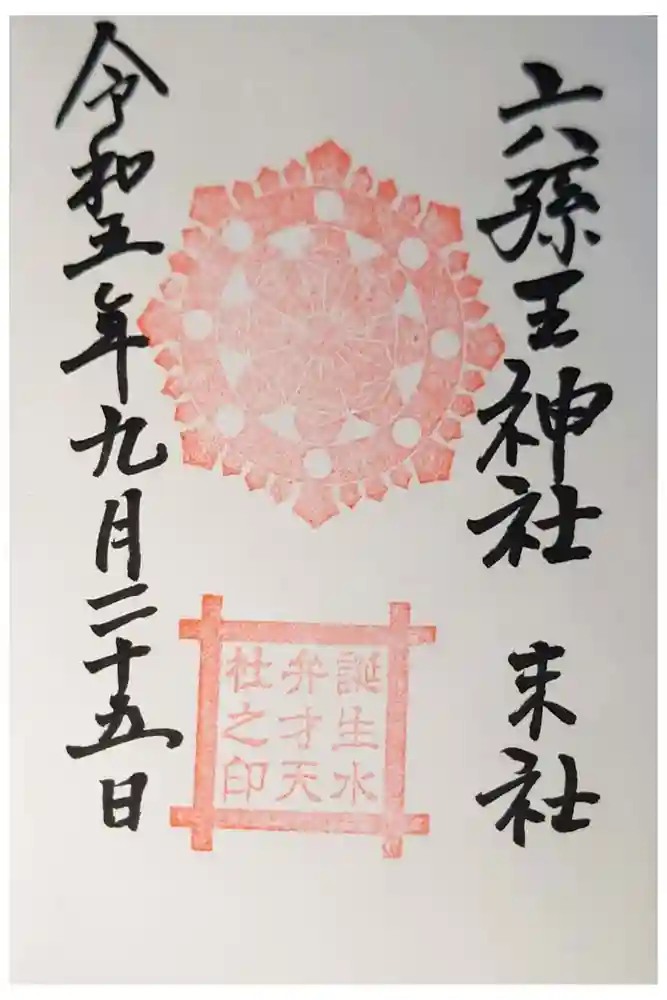 六孫王神社 末社
誕生水
弁才天
社之印
令和五年九月二十五日